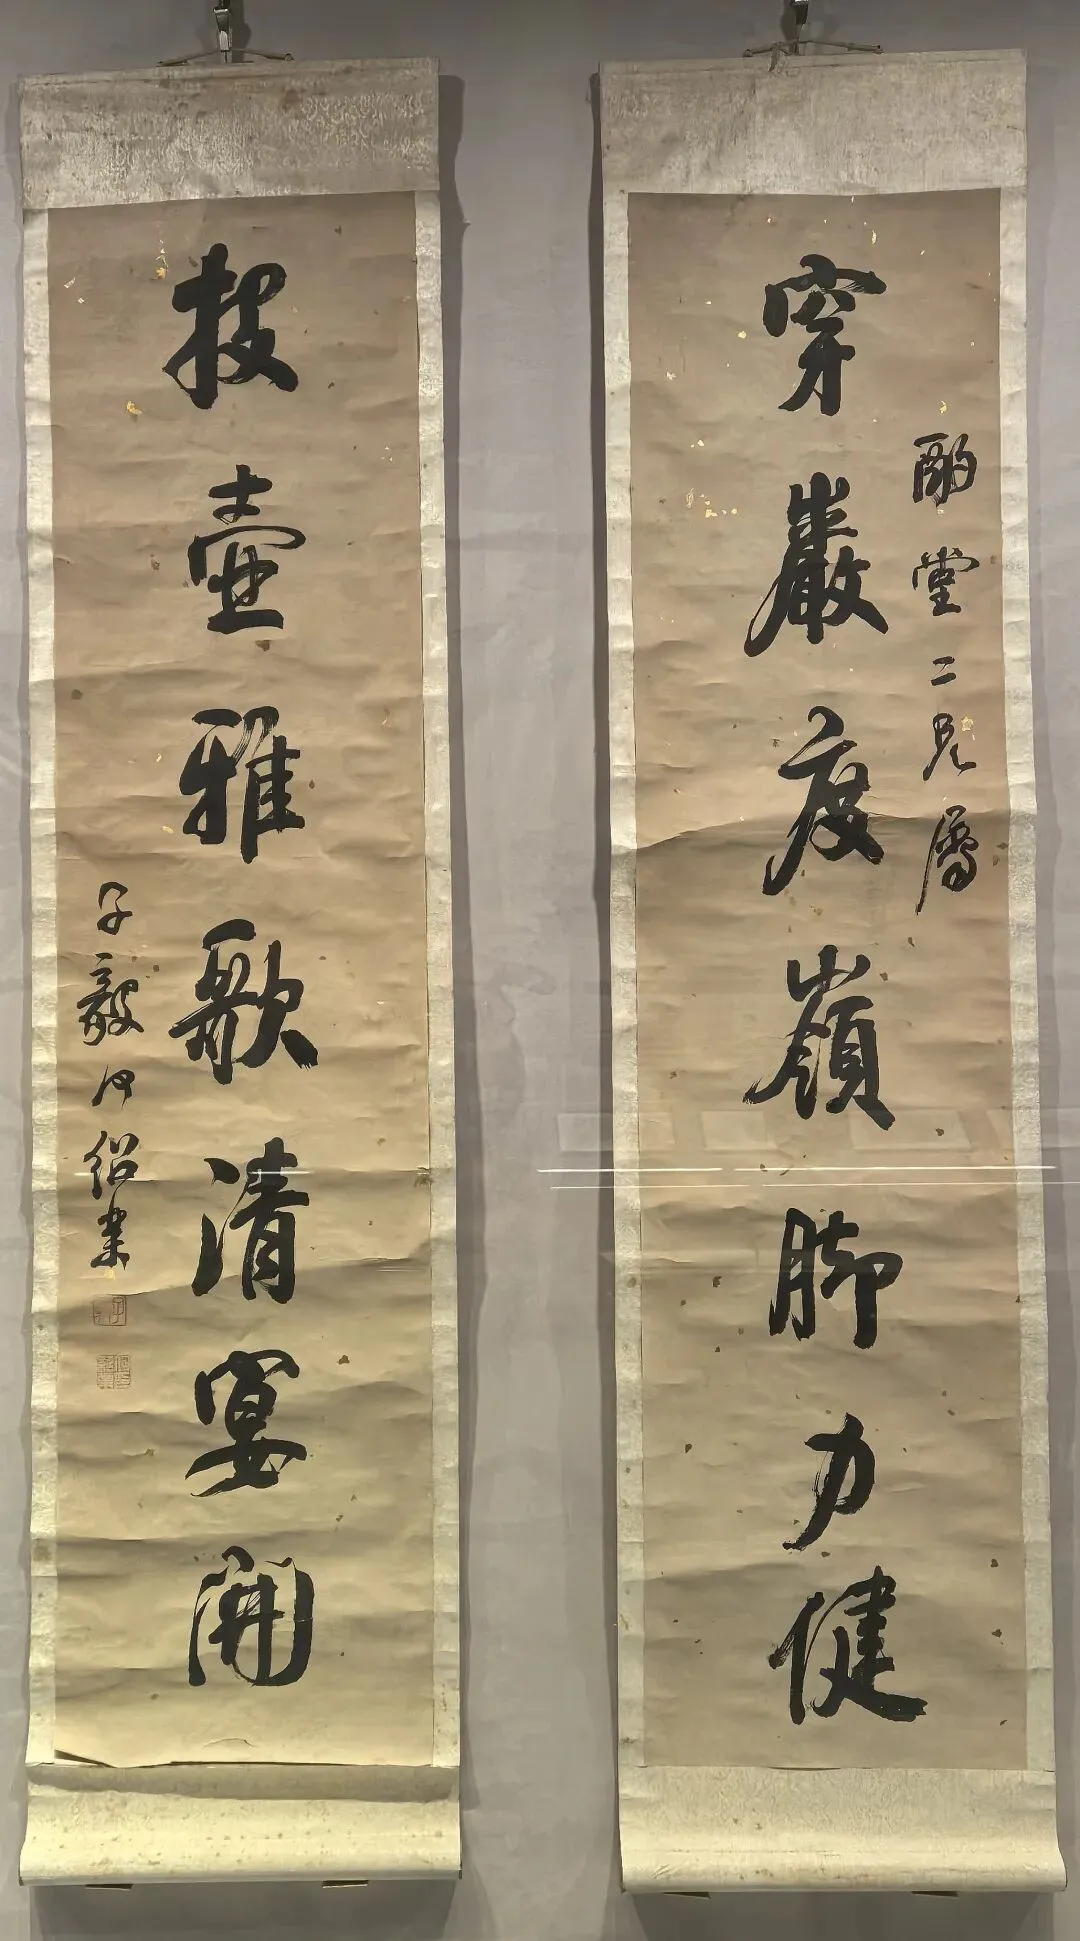 酌堂二兄屬
穿巖度嶺脚力健
投壺雅歌清宴開
子毅何紹業